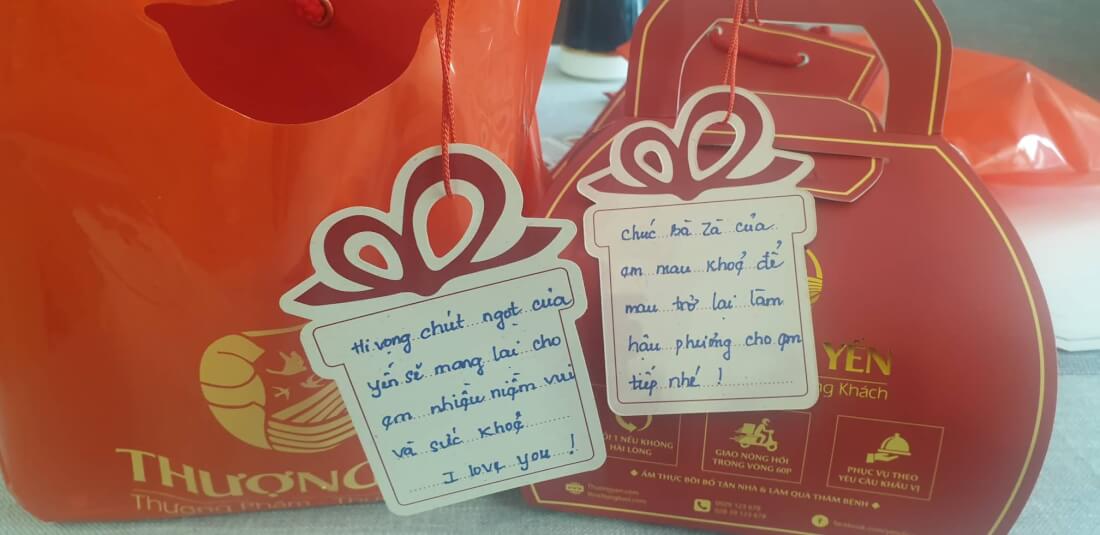 Hi vọng chút ngọt của
yến sẽ mang lại cho
em nhiều niềm vui
và sức khoẻ
I love you !
chúc bà Zà của
em mau khoẻ để
mau trở lại làm
hậu phương cho em
tiếp nhé !
THƯỢNG
Thượng Phẩm
YẾN
ng Khách
1 NẾU KHÔNG
HÀI LÒNG
GIAO NÓNG HỔI
TRONG VÒNG 60P
PHỤC VỤ THEO
YÊU CẦU KHẨU VỊ
ẨM THỰC BỒI BỔ TẬN NHÀ & LÀM QUÀ THĂM BỆNH